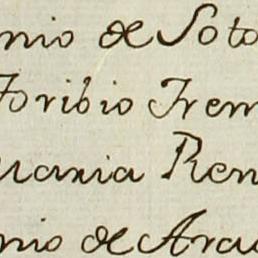 nio de Soto
Toribio Trem
Maria Ren
nio de Arau